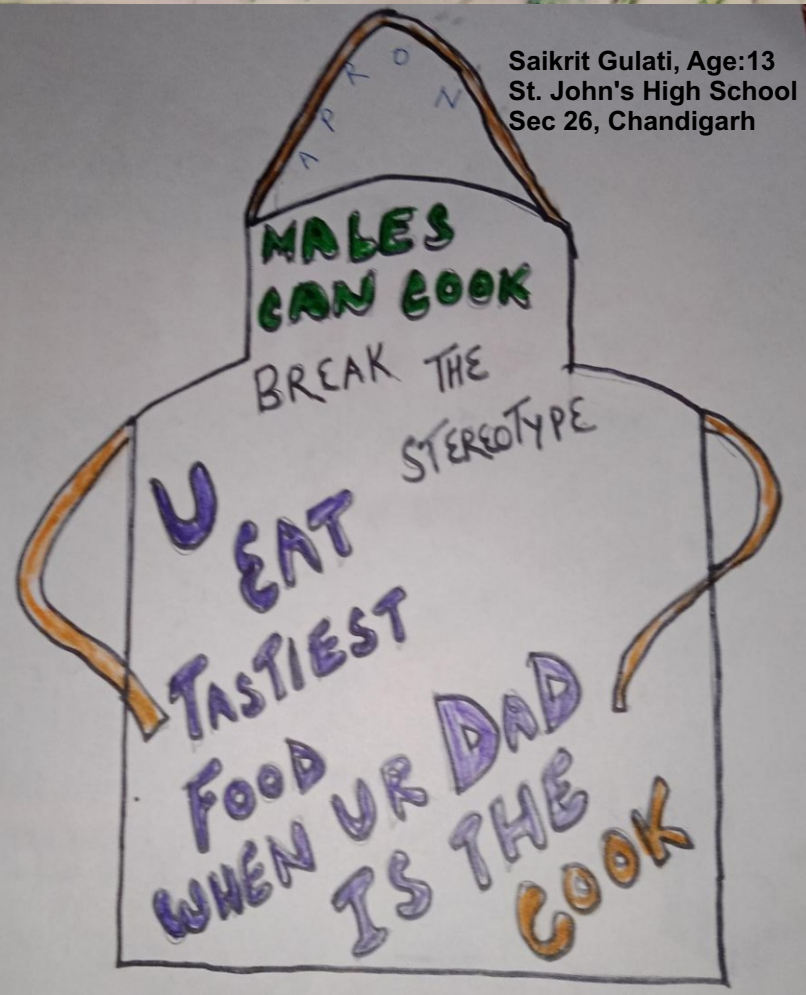 Saikrit Gulati, Age:13
St. John's High School
Sec 26, Chandigarh
APRON
MALES
CAN COOK
BREAK THE
STEREOTYPE
U
EAT
TASTIEST
FOOD
WHEN UR DAD
IS THE
COOK